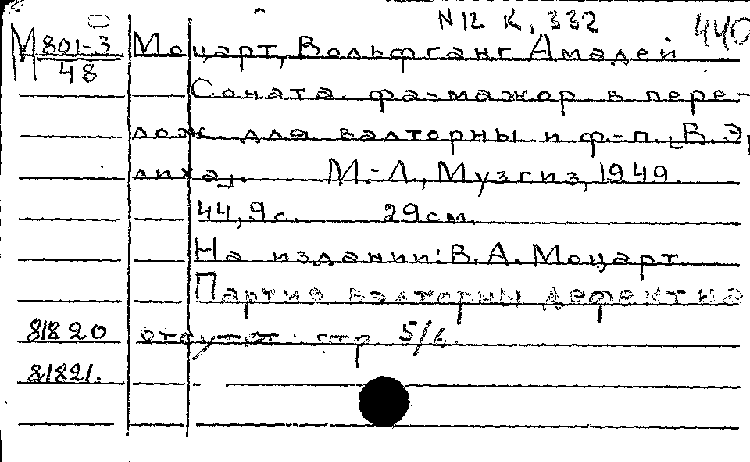 N12 К. 332 440
М 801-3 Моцарт, Вольфганг Амадей
48
Соната фа-мажор в пере-
лож. для валторны и ф-п. В. Эр
лиха. М.-Л., Музгиз, 1949.
44, 9 с. 29 см.
На издании: В. А. Моцарт.
Партия валторны дефектна
81820 отсутст. стр. 5/6.
81821.